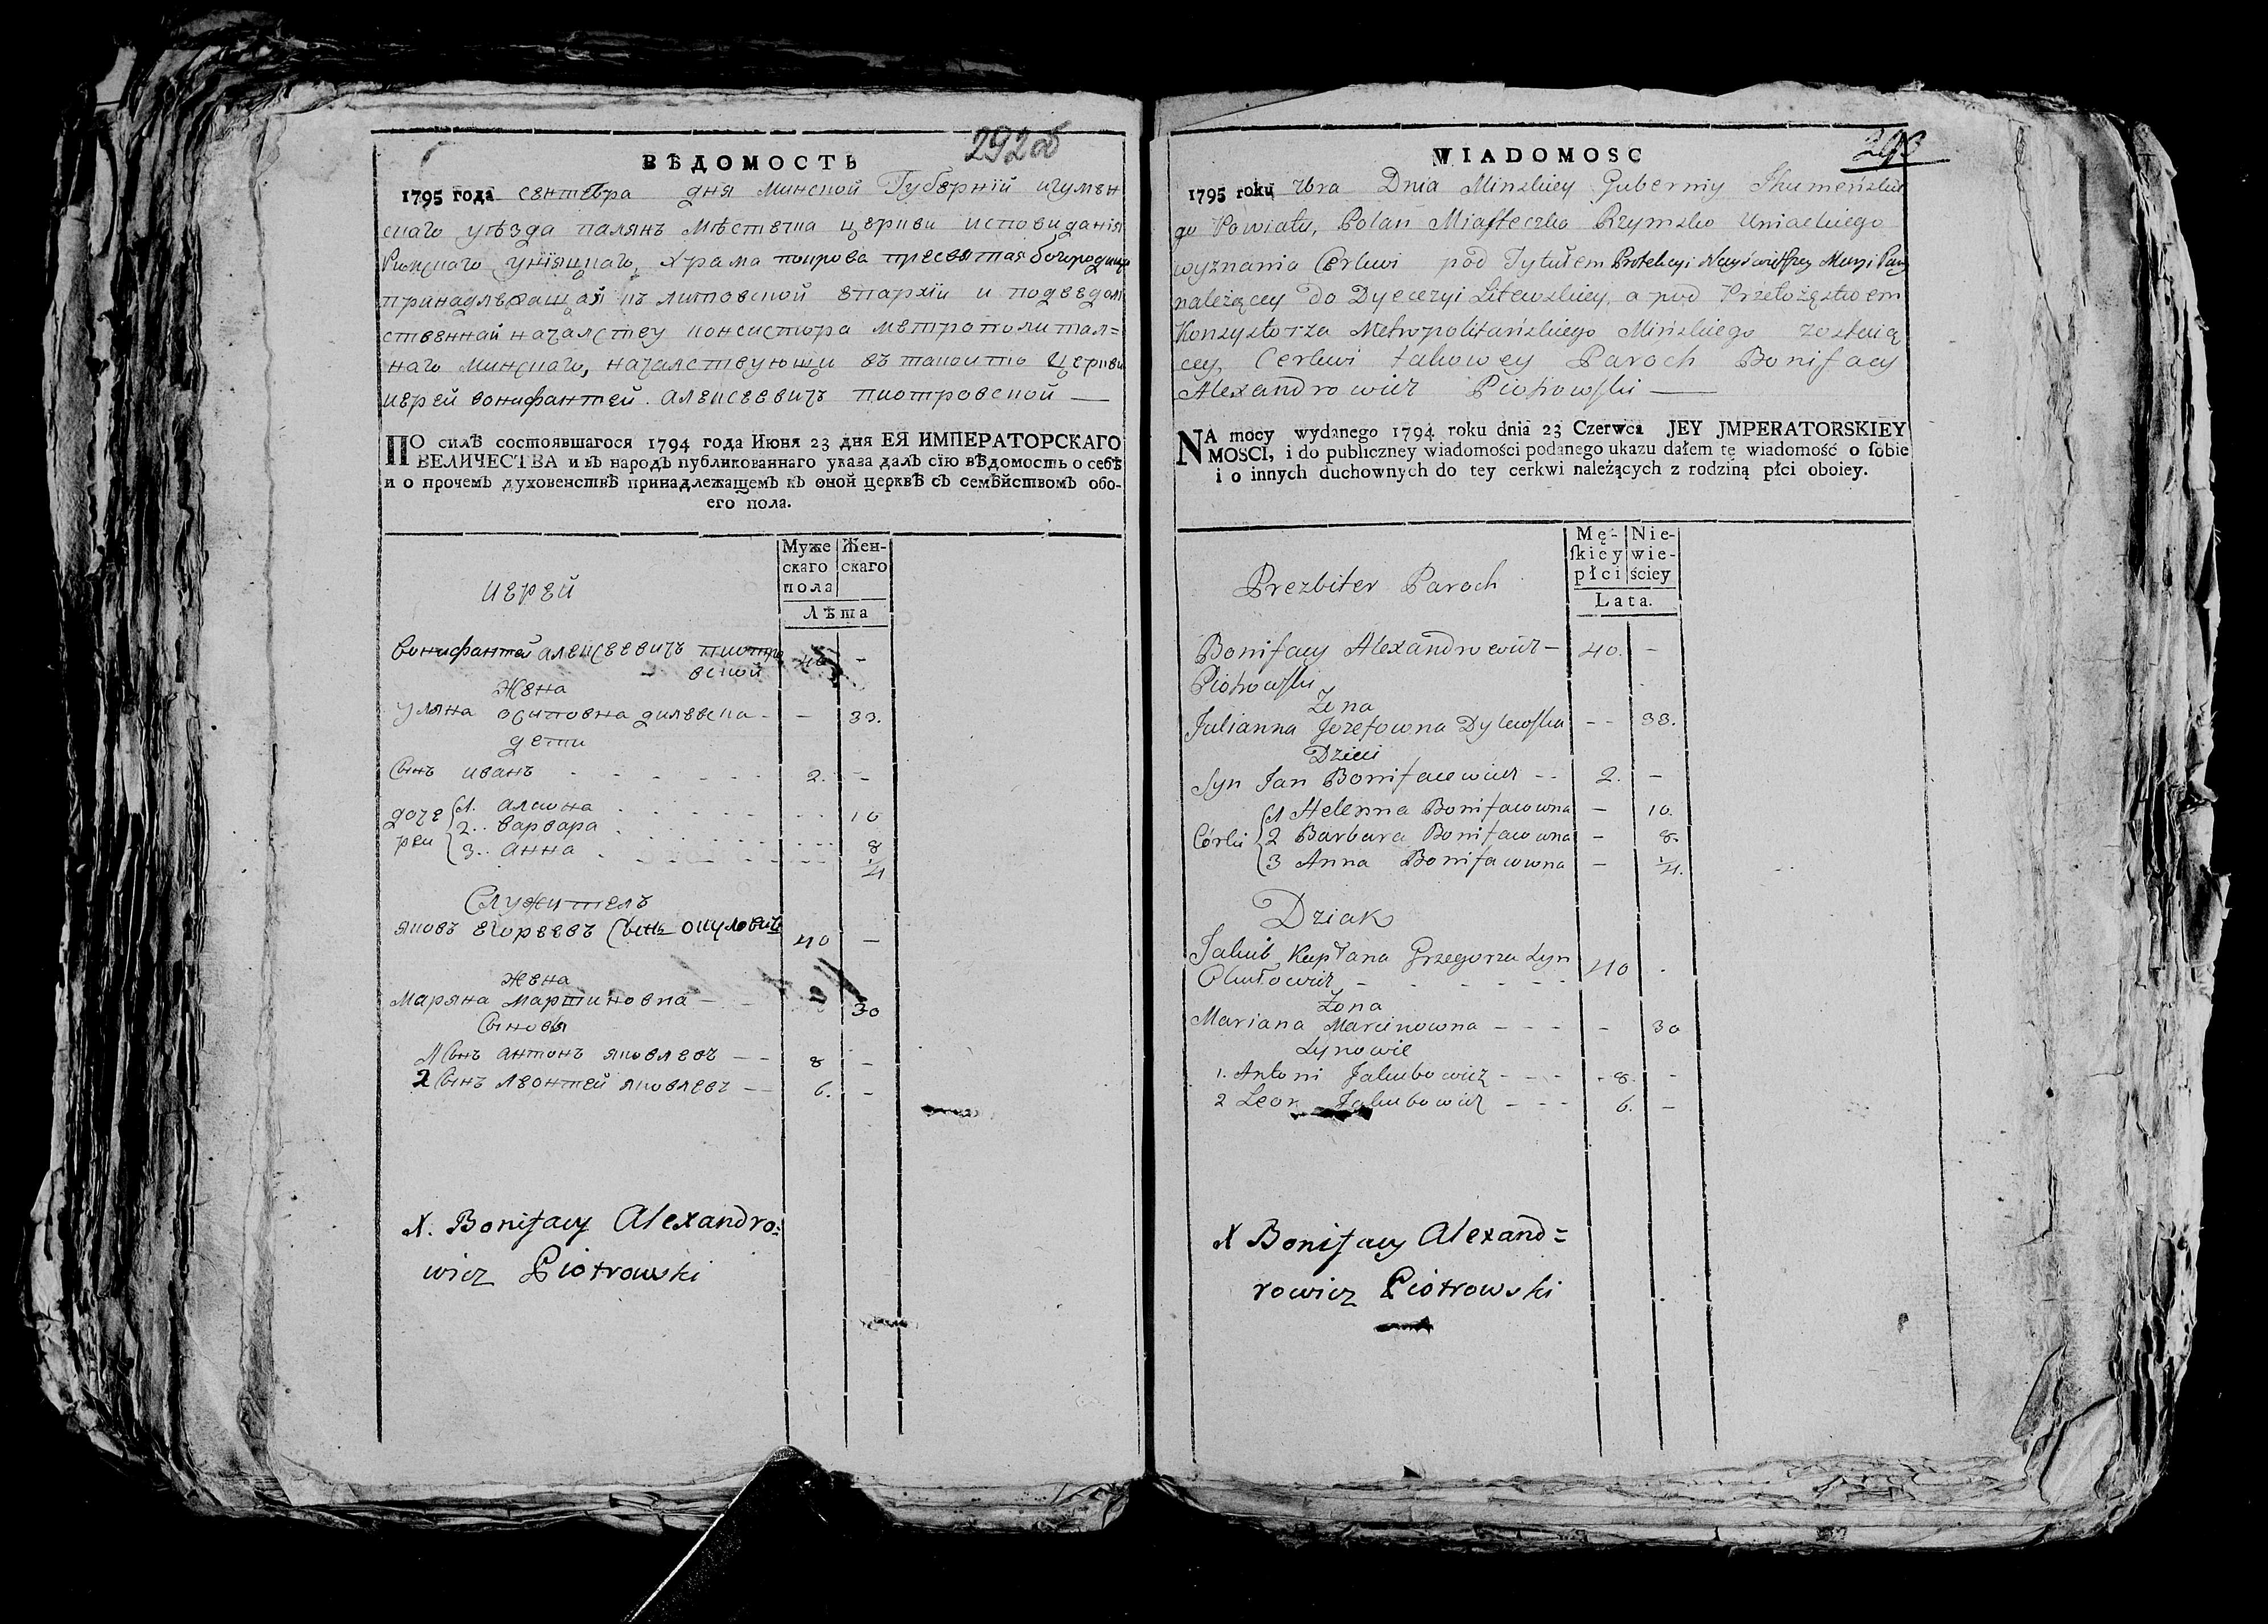 292об
ВѢДОМОСТЬ
1795 года сентебра дня минской Губернїй игумен
скаго уѣзда палянъ мѣстечка церкви исповиданія
Римскаго унїяцкаго, храма покрова пресвятая богородица
принадлежащая къ литовской епархїи и подведом
ственнай началству консистора метрополитал=
наго минскаго, началствующи въ такоито церкви
иерей вонифантей алексеевичъ пиотровской —
ПО силѣ состоявшагося 1794 года Июня 23 дня ЕЯ ИМПЕРАТОРСКАГО
ВЕЛИЧЕСТВА и въ народъ публикованнаго указа далъ сїю вѣдомость о себѣ
и о прочемъ духовенствѣ принадлежащемъ къ оной церквѣ съ семѣйствомъ обо-
его пола.
Муже Жен-
скаго скаго
пола
иерей
Лѣта
вонифантей алексеевичъ пиотро 40 -
вской
Жена
уляна осиповна дилевска - - 33.
дети
Сынъ иванъ 2. -
доче 1. алиона 10
2.. варвара 8
рки 3.. анна 1/4
Служителъ
яковъ егореевъ Сынъ окулович 40 -
жена
Маряна мартиновна - 30
Сыновя
1 Сынъ антонъ яковлевъ -- 8 -
2 Сынъ леонтей яковлевъ -- 6. -
X. Bonifacy Alexandro=
wicz Piotrowski
293
WIADOMOSC
1795 roku 7bra Dnia Minskiey Guberniy Ihumeńskie
go Powiatu, Polan Miasteczka Rzymsko Uniackiego
wyznania Cerkwi pod Tytułem Protekcyi Nayświętszey Maryi Pany
należącey do Dyecezyi Litewskiey, a pod Przełożęstwem
Konzystorza Metropolitańskiego Mińskiego zostaią
cey, Cerkwi takowey Paroch Bonifacy
Alexandrowicz Piotrowski —
NA mocy wydanego 1794 roku dnia 23 Czerwca JEY JMPERATORSKIEY
MOSCI, i do publiczney wiadomości podanego ukazu dałem tę wiadomość o ſobie
i o innych duchownych do tey cerkwi należących z rodziną płci oboiey.
Mę- Nie-
ſkiey wie-
płci ściey
Prezbiter Paroch
Lata.
Bonifacy Alexandrowicz - 40. -
Piotrowski
Zona
Julianna Jozefowna Dylewska - - 33.
Dzieci
Syn Jan Bonifacewicz -- 2. -
1 Helenna Bonifacowna - 10.
Córki 2 Barbara Bonifacowna - 8.
3 Anna Bonifacowna - 1/4.
Dziak
Jakub Kapłana Grzegorza Syn 40 .
Okułowicz
Zona
Mariana Marcinowna - - - - 30
Synowie
1. Antoni Jakubowicz - - - 8. -
2 Leon Jakubowicz - - - 6. -
X Bonifacy Alexand=
rowicz Piotrowski